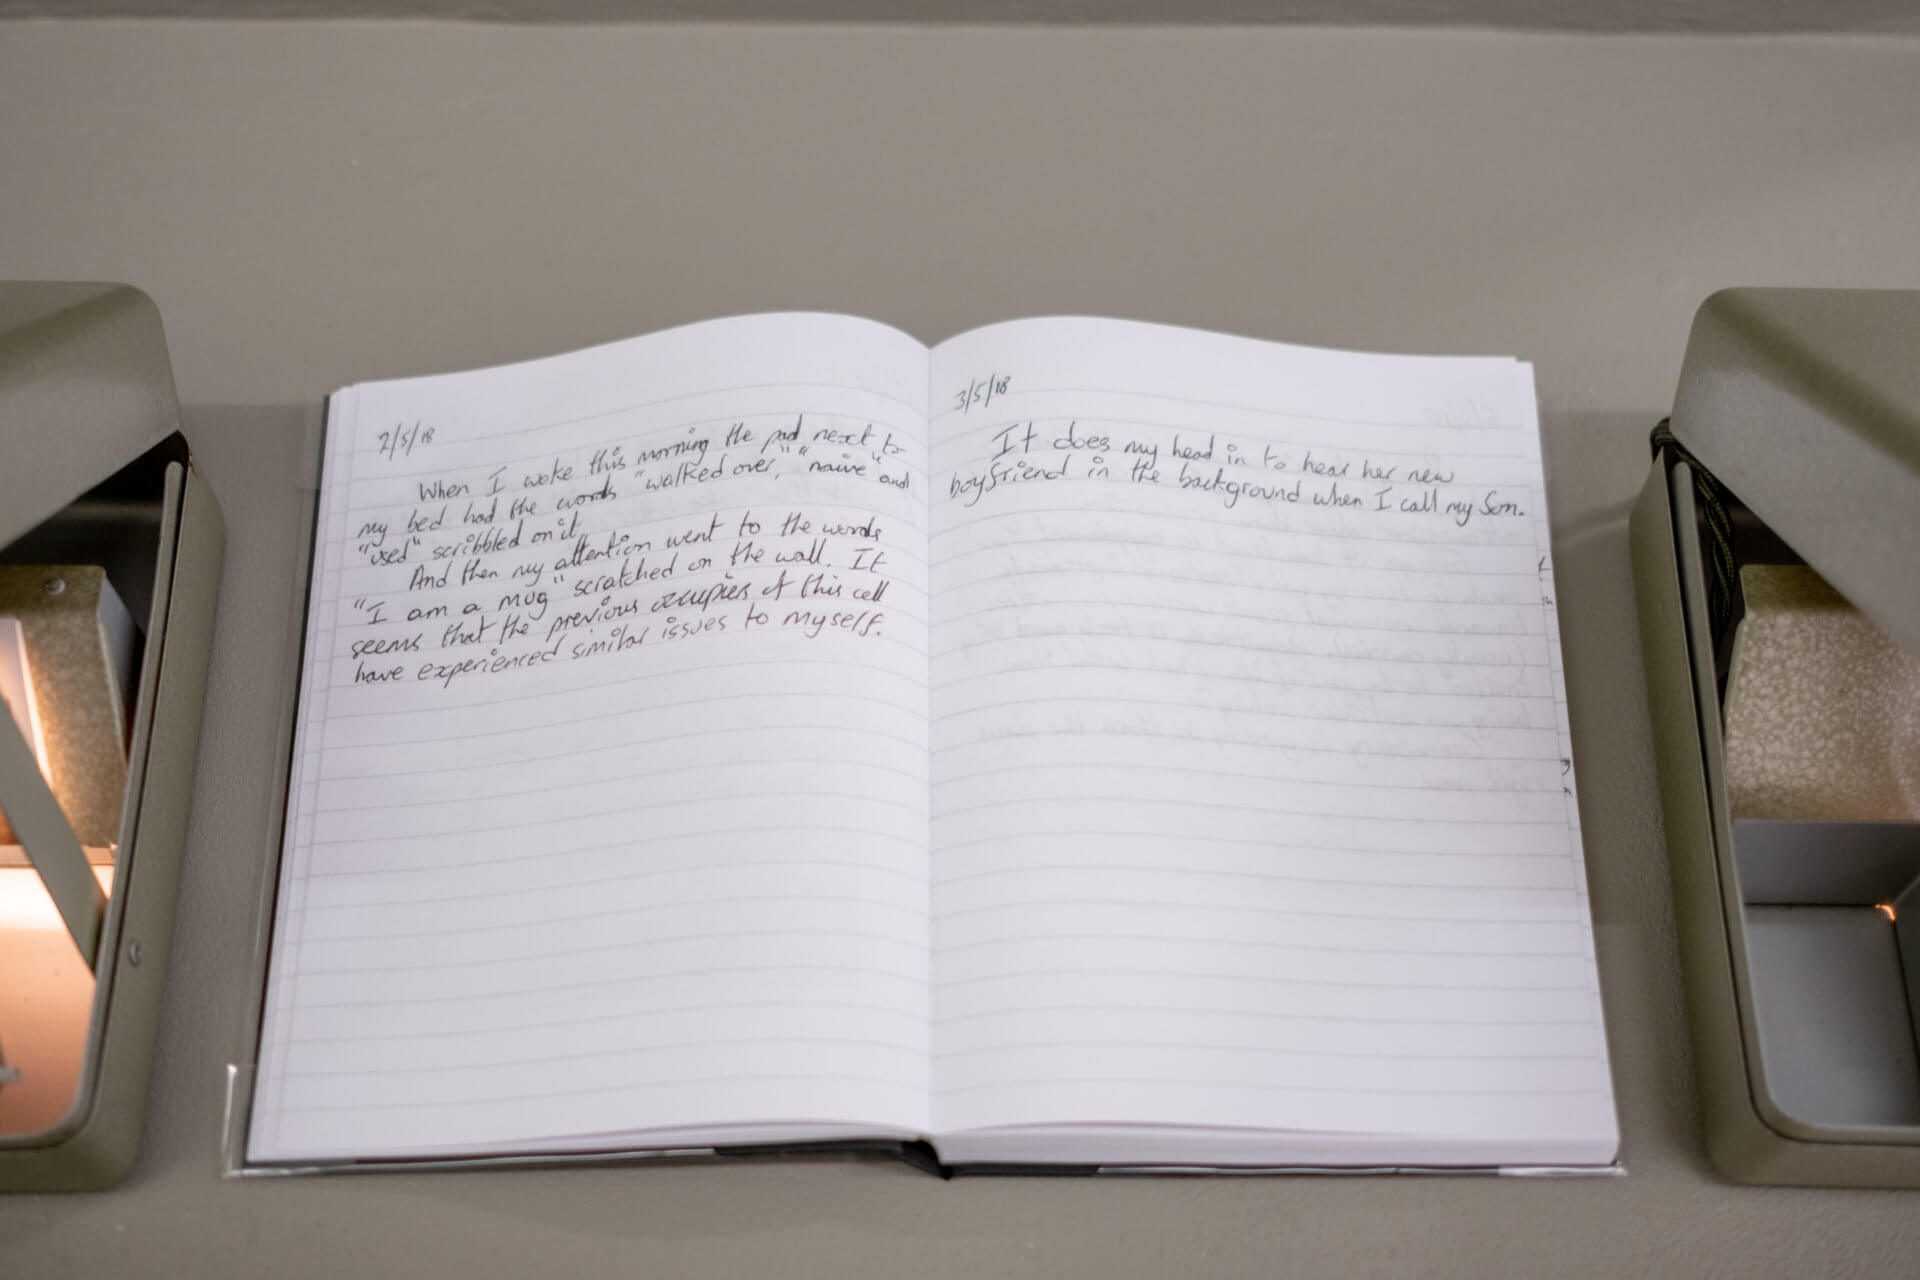 2/5/18
When I woke this morning the pad next to
my bed had the words "walked over," "naive" and
"used" scribbled on it.
And then my attention went to the words
"I am a mug" scratched on the wall. It
seems that the previous occupiers of this cell
have experienced similar issues to myself.
3/5/18
It does my head in to hear her new
boyfriend in the background when I call my Son.